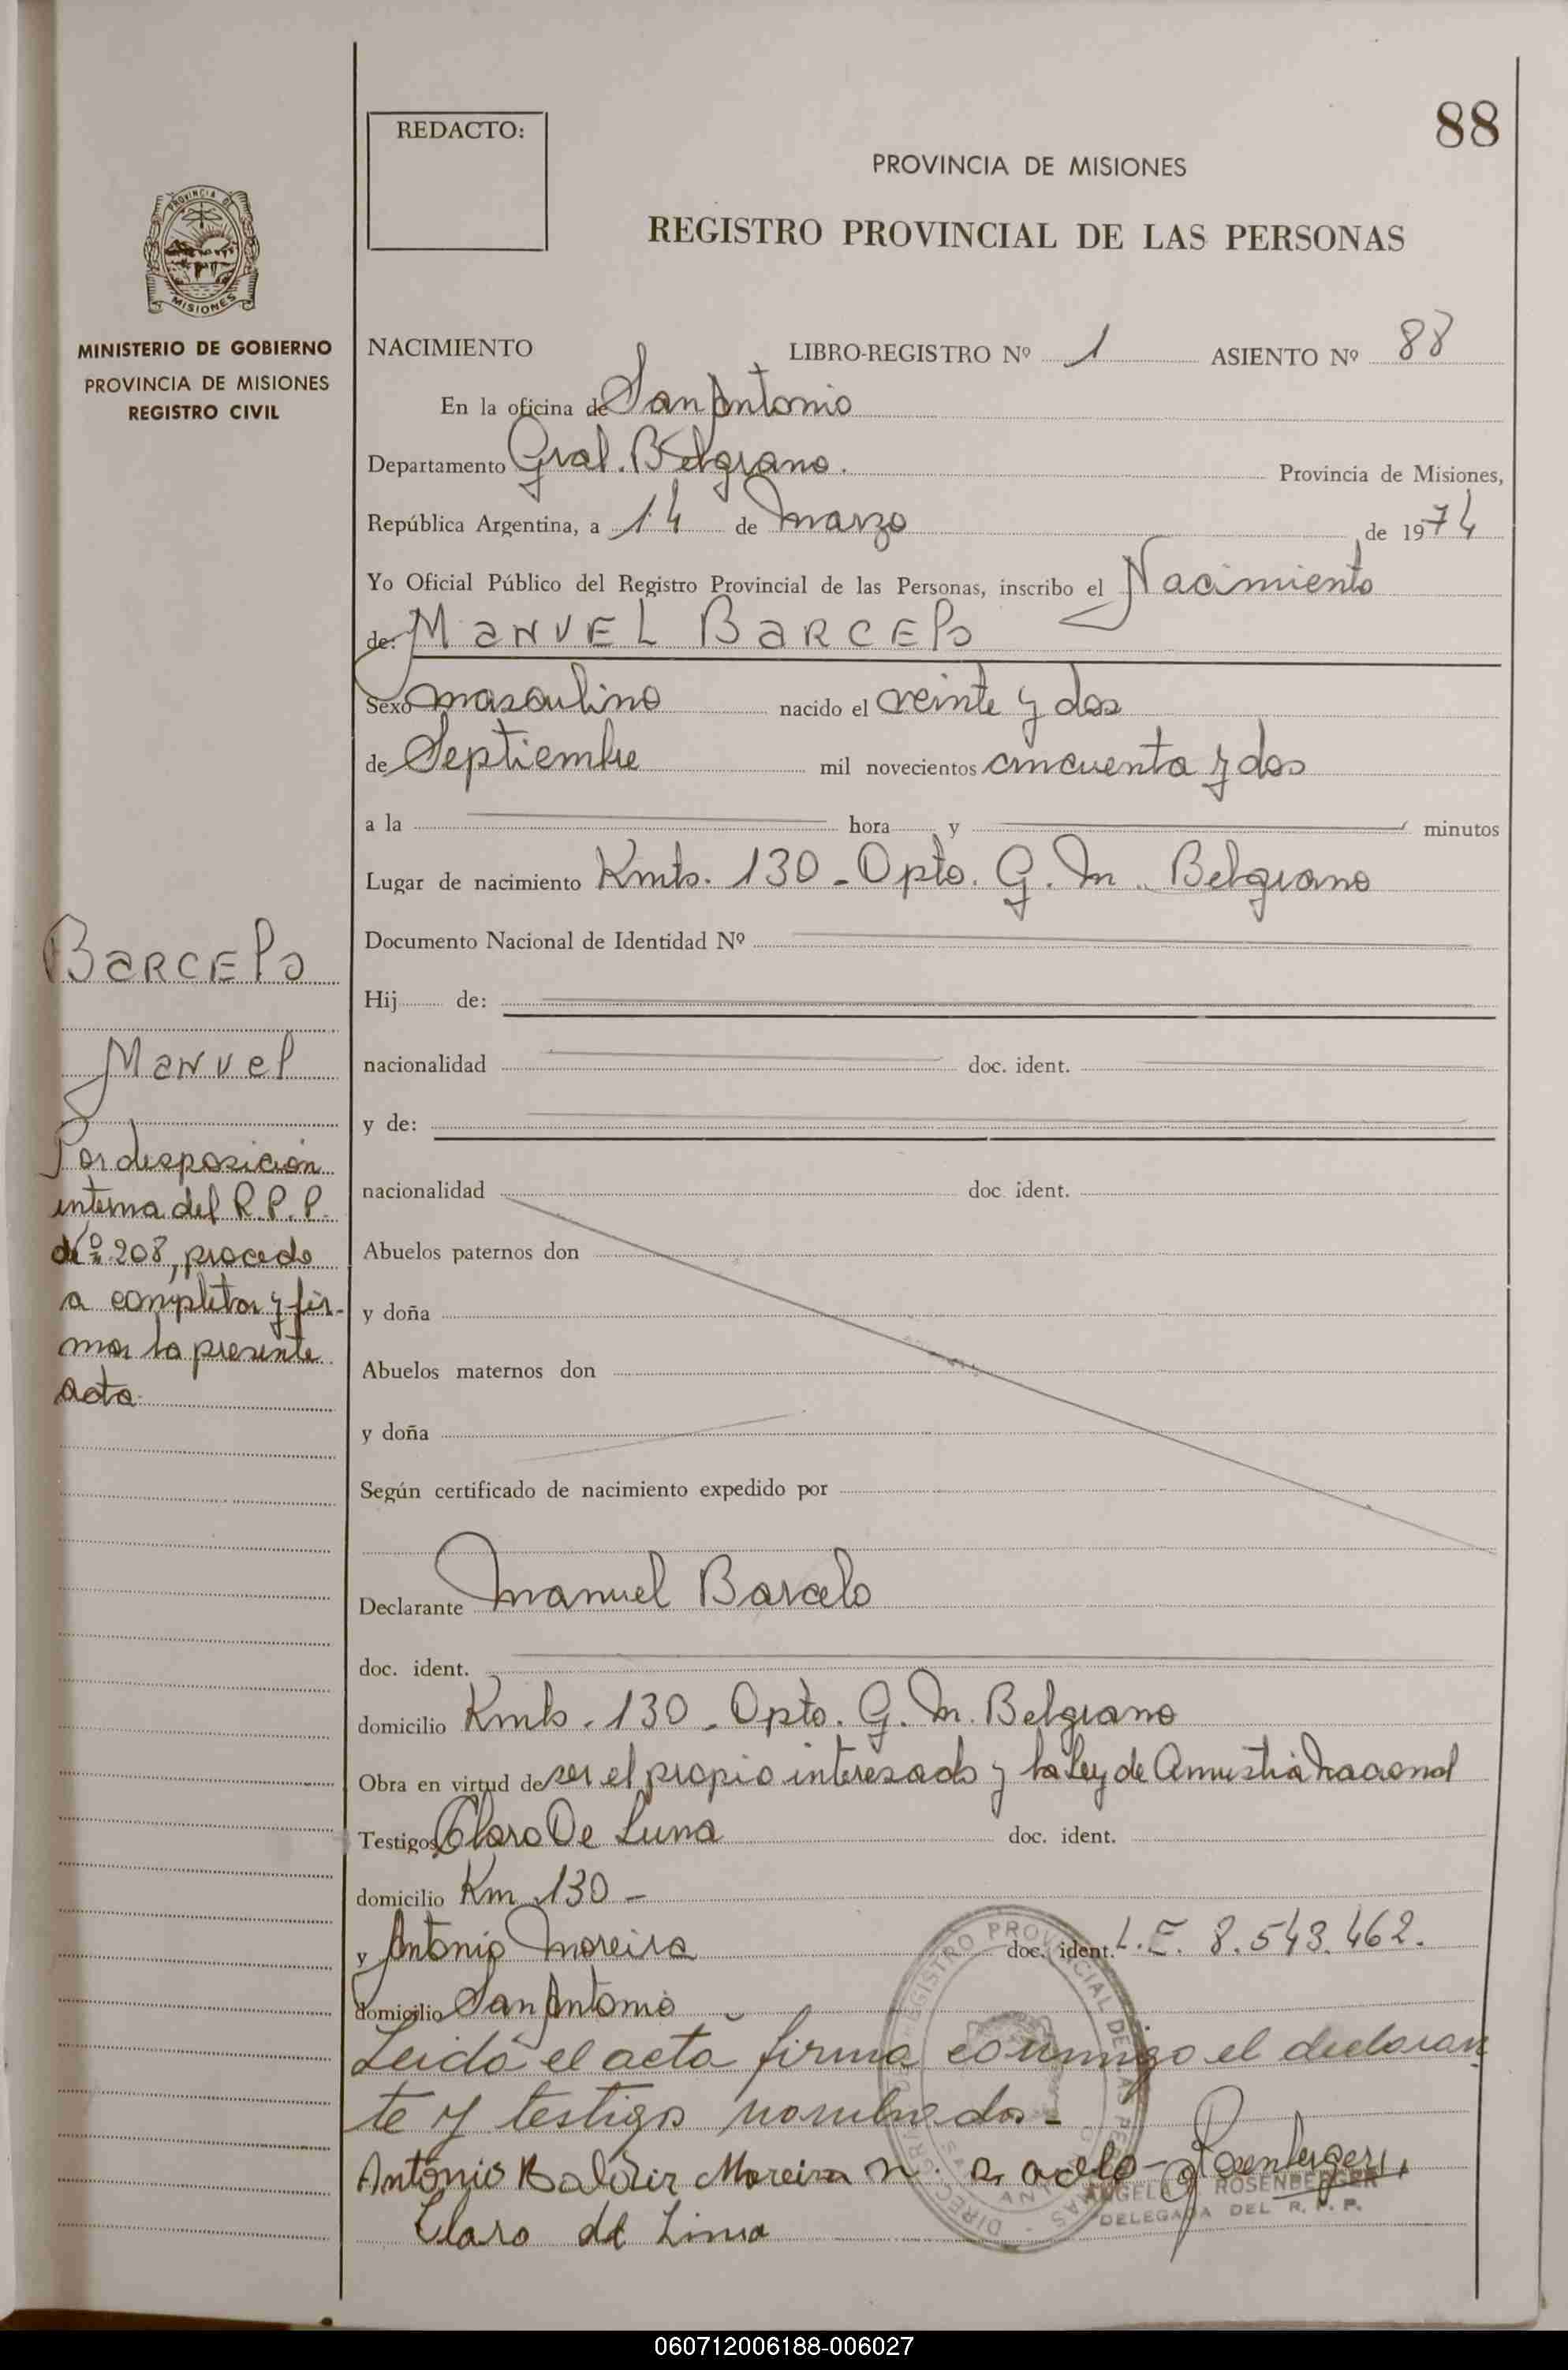 88
REDACTO:
PROVINCIA DE MISIONES
REGISTRO PROVINCIAL DE LAS PERSONAS
PROVINCIA DE
MISIONES
MINISTERIO DE GOBIERNO
PROVINCIA DE MISIONES
REGISTRO CIVIL
NACIMIENTO LIBRO-REGISTRO Nº 1 ASIENTO Nº 88
En la oficina de San Antonio
Departamento Gral. Belgrano. Provincia de Misiones,
República Argentina, a 14 de marzo de 1974
Yo Oficial Público del Registro Provincial de las Personas, inscribo el Nacimiento
de: MANUEL BARCELO
Sexo masculino nacido el veinte y dos
de Septiembre mil novecientos cincuenta y dos
a la hora y minutos
Lugar de nacimiento Kmts. 130 - Dpto. G. M. Belgrano
Documento Nacional de Identidad Nº
Hij de:
nacionalidad doc. ident.
y de:
nacionalidad doc. ident.
Abuelos paternos don
y doña
Abuelos maternos don
y doña
Según certificado de nacimiento expedido por
Declarante Manuel Barcelo
doc. ident.
domicilio Kmts. 130 - Dpto. G. M. Belgrano
Obra en virtud de ser el propio interesado y la Ley de Amnistia Nacional
Testigos Claro De Luna doc. ident.
domicilio Km 130 -
y Antonio Moreira doc. ident. L.E. 8.543.462.
domicilio San Antonio
Leida el acta firma conmigo el declaran
te y testigos nombrados -
Antonio Moreira
ROSENBERGER
DELEGADA DEL R. P. P.
Claro de Luna
BARCELO
Manuel
Por disposicion
interna del R.P.P.
Nº 208, procedo
a completar y fir-
mar la presente
acta.
060712006188-006027